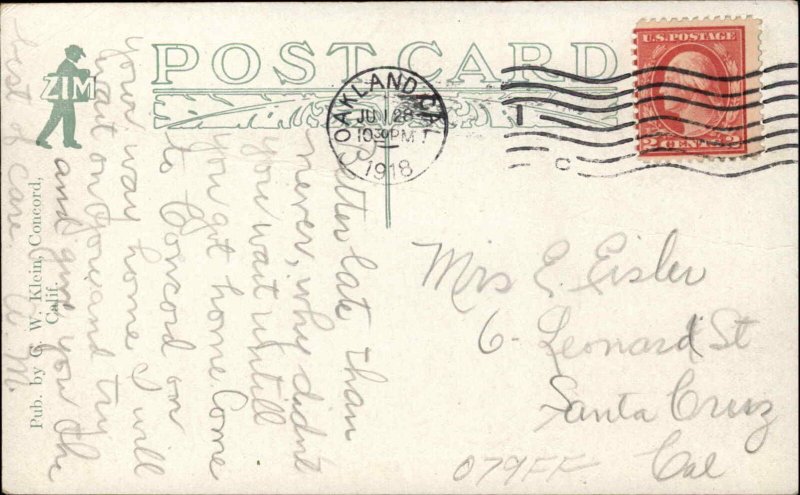 POST CARD
ZIM
Pub. by C. W. Klein, Concord, Calif.
OAKLAND, CAL.
JUN 28
10 30 PM
1918
U.S. POSTAGE
2 CENTS 2
Better late than
never, why didnt
you wait untill
you got home. Come
to Concod on
your way home I will
wait on you and try
and give you the
best of care. A. M.
Mrs E. Eisler
6 Leonard St
Santa Cruz
Cal
079FF